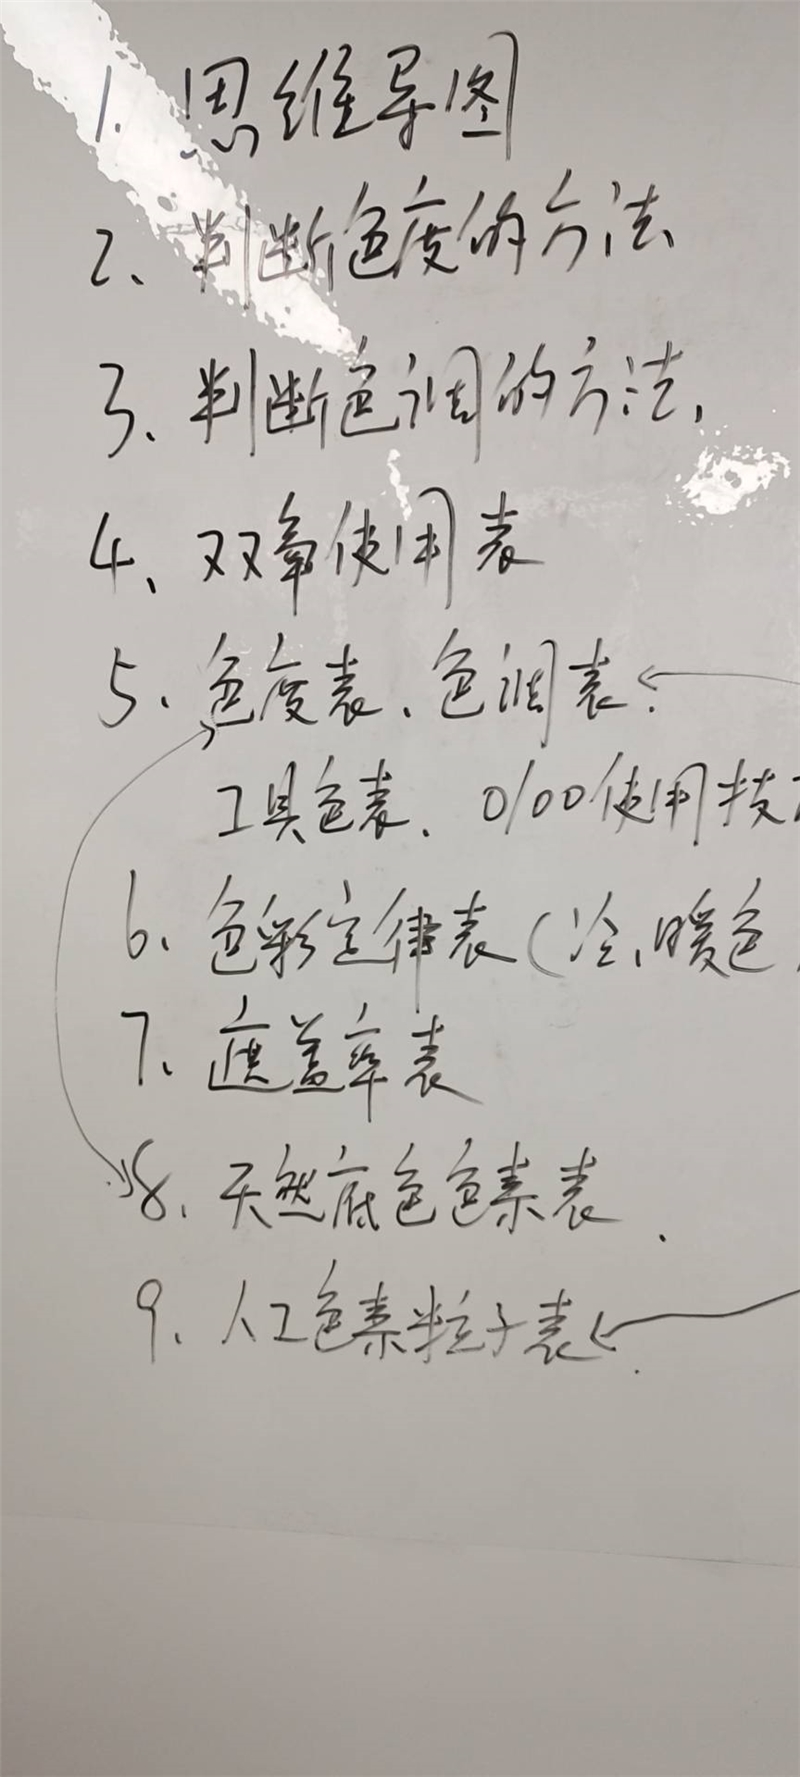 1. 思维导图
2、判断色度的方法
3、判断色调的方法,
4、双氧使用表
5、色度表、色调表.
工具色表、0/00使用技
6、色彩定律表(冷、暖色
7、遮盖率表
8、天然底色色素表.
9、人工色素粒子表.